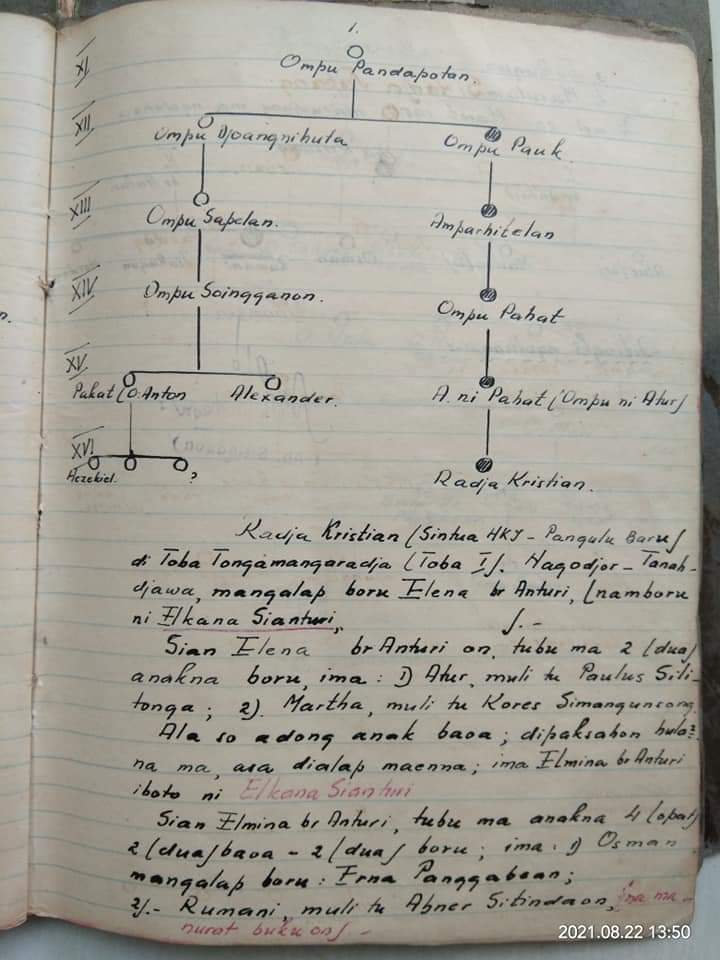 1.
XI
Ompu Pandapotan.
XII
Ompu Djoangnihuta
Ompu Pauk.
XIII
Ompu Sapelan.
Amparhitelan
XIV
Ompu Soingganon.
Ompu Pahat
XV
Pahat (O. Anton
Alexander.
A. ni Pahat (Ompu ni Atur)
XVI
Aezekiel.
?
Radja Kristian.
Radja Kristian (Sintua HKI - Pangulu Baru)
di Toba Tongamangaradja (Toba I). Nagodjor - Tanah-
djawa, mangalap boru Elena br Anturi, (namboru
ni Elkana Sianturi, ). -
Sian Elena br Anturi on, tubu ma 2 (dua)
anakna boru, ima: 1) Atur, muli tu Paulus Sili-
tonga; 2). Martha, muli tu Kores Simangunsong.
Ala so adong anak baoa; dipaksahon hula2
na ma, asa dialap maenna; ima Elmina br Anturi
iboto ni Elkana Sianturi
Sian Elmina br Anturi, tubu ma anakna 4 (opat)
2 (dua) baoa - 2 (dua) boru; ima: 1) Osman
mangalap boru: Erna Panggabean;
2). - Rumani, muli tu Abner Sitindaon, ma-
nurat buku on). -
2021.08.22 13:50